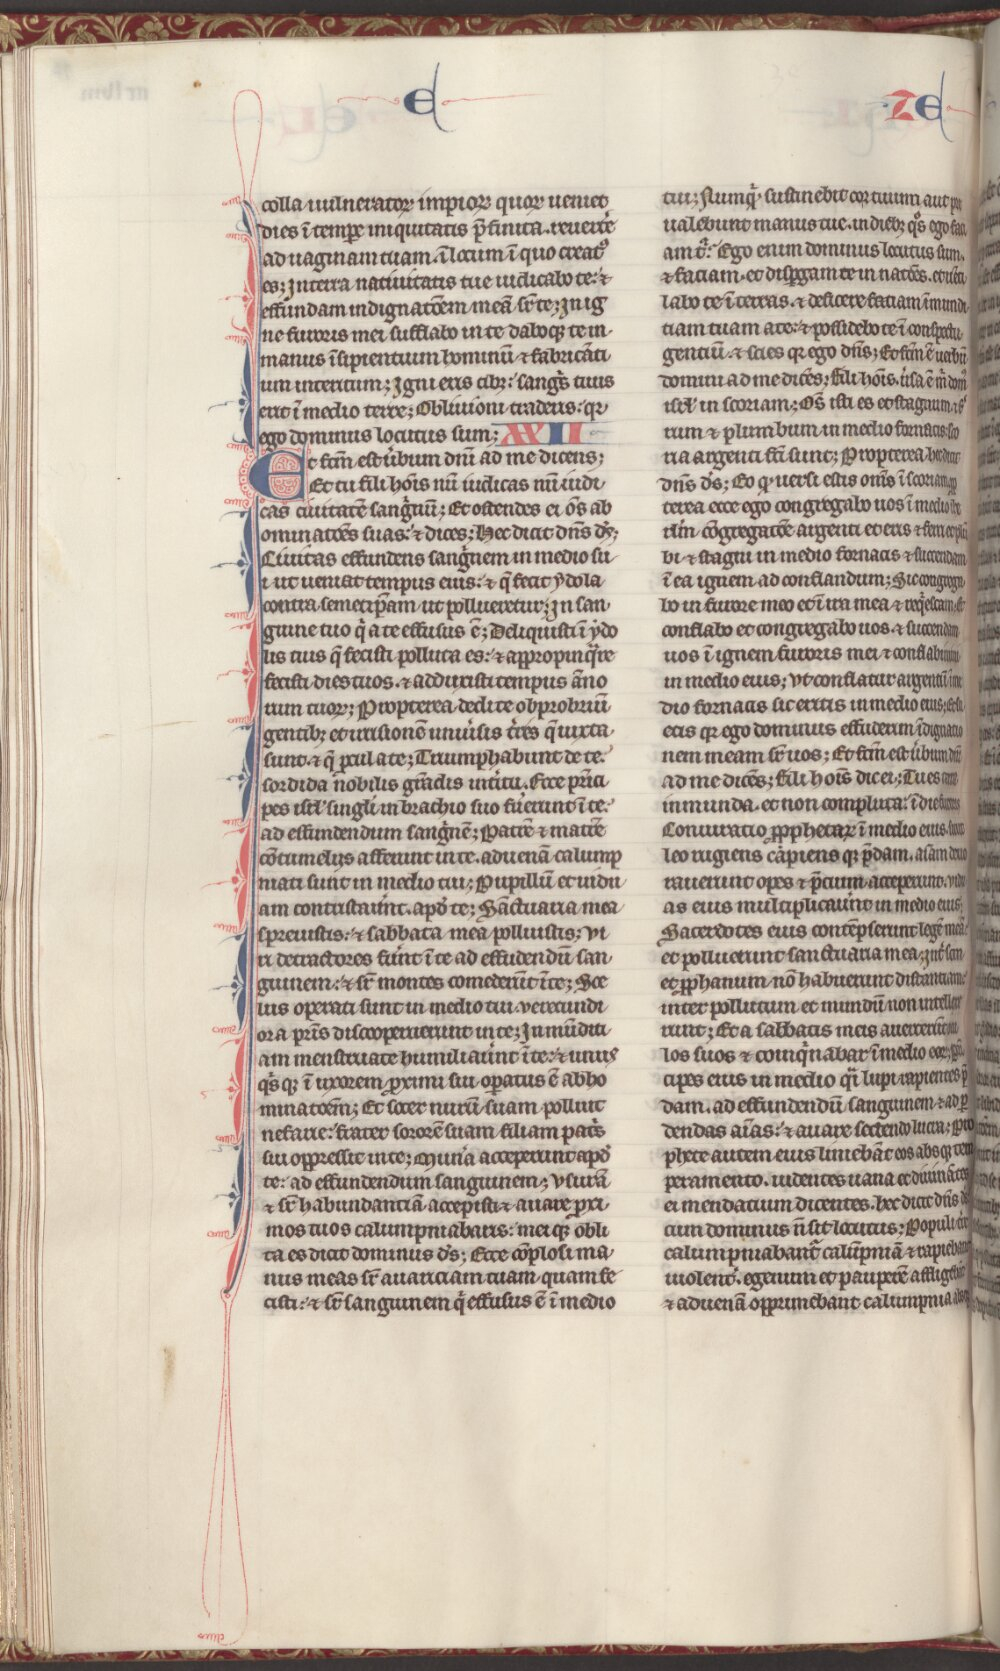 E
ZE
colla uulneratoꝝ impioꝝ quoꝝ ueniet
dies ī tempr̄e iniquitatis p̄finita. reuertẽ
ad uaginam tuam. ī locum ī quo creatꝰ
es; In terra natiuitatis tue iudicabo te: ⁊
effundam indignatōem meā sr̄ te; In ig
ne furoris mei sufflabo in te daboqꝫ te in
manus īsipientium hominū ⁊ fabricāti
um interitum; Igni eris cibꝫ: sangⁱs tuus
erit ī medio terre; Obliuioni traderis: qꝛ
ego dominus locutus sum; XXII
Et fc̄m est ūbum dn̄i ad me dicens;
Et tu fili hōis nū iudicas nū iudi
cas ciuitatē sangⁱnū; Et ostendes ei oēs ab
ominatōes suas: ⁊ dices; Hec dicit dn̄s ds̄;
Ciuitas effundens sangⁱnem in medio su
i ut ueniat tempus eius: ⁊ q̄ fecit ydola
contra semetip̄am ut pollueretur; In san
guine tuo qⁱ a te effusus ē; Deliquisti ī ydo
lis tuis q̄ fecisti polluta es: ⁊ appropinq̄re
fecisti dies tuos. ⁊ adduxisti tempus āno
rum tuoꝝ; Propterea dedi te obprobriū
gentibꝫ et irrisionē uniūsis tr̄is q̄ iuxta
sunt. ⁊ q̄ pcul a te; Triumphabunt de te.
sordida nobilis grādis int̄itu. Ecce prīci
pes isrl̄ singl̄i in brachio suo fuerunt ī te.
ad effundendum sangⁱnē; Patrē ⁊ matrē
cōtumelijs affecerunt in te. aduenā calump
niati sunt in medio tui; Pupillū et uidu
am contristauīnt. apd̄ te; Sāctuaria mea
spreuistis: ⁊ sabbata mea polluistis; Vi
ri detractores fuīnt ī te ad effūdendū san
guinem: ⁊ sr̄ montes comederūt ī te; Sce
lus operati sunt in medio tui. verecundi
ora pr̄is discooperuerunt in te; Inmūditi
am menstruate humiliauīnt ī te: ⁊ unus
qⁱsqꝫ ī uxorem pximi sui opatus ē abho
minatōem; Et socer nurū suam polluit
nefarie: frater sororē suam filiam patⁱs
sui oppressit in te; Munera acceperunt apd̄
te: ad effundendum sanguinem; Vsurā
⁊ sr̄ habundantiā accepisti ⁊ auare pxi
mos tuos calumpniabaris: meiqꝫ obli
ta es dicit dominus ds̄; Ecce cōplosi ma
nus meas sr̄ auariciam tuam quam fe
cisti: ⁊ sr̄ sanguinem qⁱ effusus ē ī medio
tui; Numqⁱd sustinebit cor tuum aut p̄
ualebunt manus tue. in diebꝫ qⁱs ego faci
am tⁱ: Ego enim dominus locutus sum.
⁊ faciam. et dispgam te in natōes. et uēti
labo te ī terras. ⁊ deficere faciam īmundi
tiam tuam a te: ⁊ possidebo te ī conspectu
gentiū. ⁊ scies qꝛ ego dn̄s; Et fc̄m ē uerbū
domini ad me dicēs; Fili hōis. ūsa ē m̄ dom̄
isrl̄ in scoriam; Oēs isti es et stagnum. ⁊ fⁱ
rum ⁊ plumbum in medio fornacis: sco
ria argenti fc̄i sunt; Propterea. hec dicit
dn̄s ds̄; Eo q uersi estis oīns ī scoriam. pp
terea ecce ego congregabo uos ī medio
irl̄m cōgregatōe argenti et eris ⁊ ferri et
bi ⁊ stagni in medio fornacis ⁊ succendam
ī ea ignem ad conflandum; Sic congrega
bo in furore meo et ī ira mea ⁊ reqⁱescam. Et
conflabo et congregabo uos. ⁊ succendam
uos ī ignem furoris mei ⁊ conflabimini
in medio eius; Vt conflatur argentū ī me
dio fornacis sic eritis in medio eius; ⁊ sci
etis qꝛ ego dominus effuderim īdignatio
nem meam sr̄ uos; Et fc̄m est ūbum dn̄i
ad me dicēs; Fili hoīs dic ei; Tu es terra
inmunda. et non compluta. ī die furoris
Coniuratio pphetaꝝ ī medio eius. sicut
leo rugiens cāpiens qꝫ p̄dam. aīam deuo
rauerunt opes ⁊ p̄cium. acceperunt. vidu
as eius multiplicauīnt in medio eius;
Sacerdotes eius contēpserunt legē meā
et polluerunt sanctuaria mea; Int̄ san
et pphanum nō habuerunt distantiam:
inter pollutum et mundū non intellexe
runt; Et a sabbatis meis auerterūt ocu
los suos ⁊ coinqⁱnabar ī medio eoꝝ; pⁱn
cipes eius in medio qⁱ lupi rapientes p̄
dam. ad effundendū sanguinem ⁊ ad p
dendas aīas: ⁊ auare sectendo lucra; Pro
phete autem eius liniebāt eos absqꝫ tem
peramento. uidentes uana et diuināntes
ei mendacium dicentes. hec dicit dn̄s ds̄
cum dominus n̄ sit locutus; Populi t̄re
calumpniabant̄ calūpniā ⁊ rapiebant
uiolent̄. egenum et pauperē affligebāt
⁊ aduenā opprimebant calumpnia absqꝫ